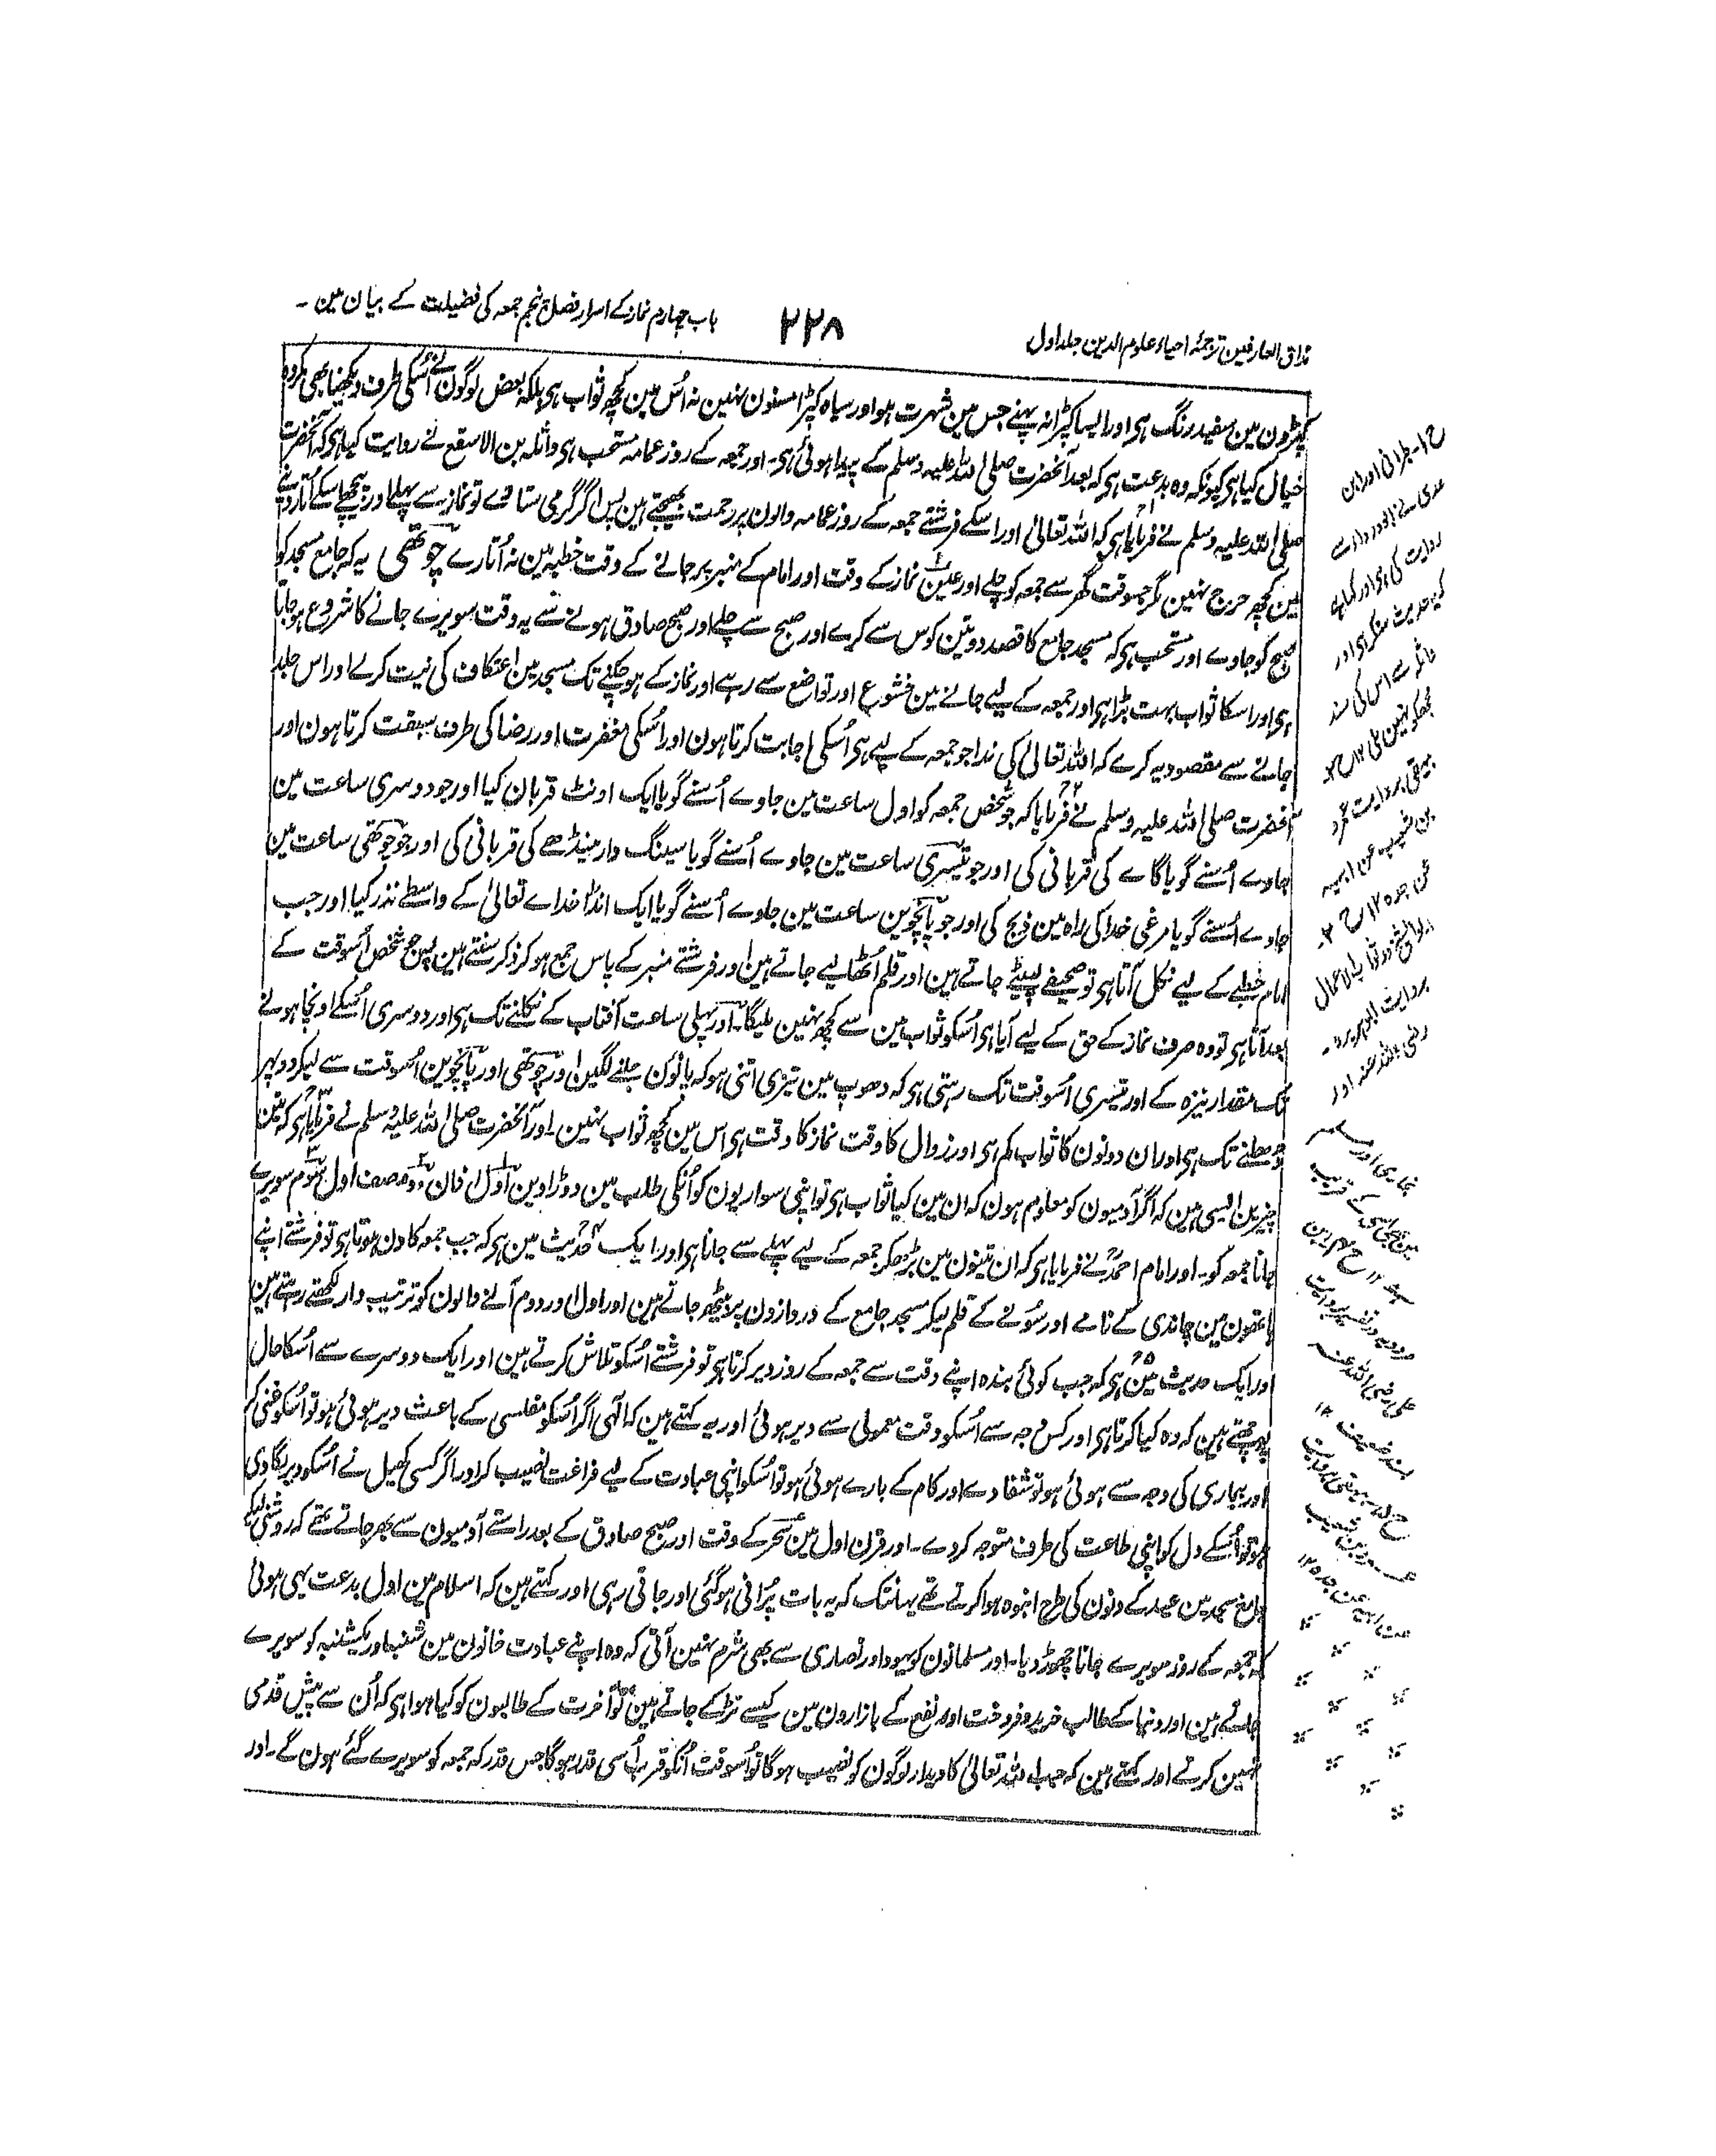 مذاق العارفین ترجمۂ احیاء علوم الدین جلد اول
۲۲۸
باب چہارم نماز کے اسرار فصل پنجم جمعہ کی فضیلت کے بیان مین ۔
کپڑون مین سفید رنگ ہی اور ایسا کپڑا نہ پہنے جس مین شہرت ہو اور سیاہ کپڑا مسنون نہین نہ اُس مین کچھ ثواب ہی بلکہ بعض لوگون نے اُسکی طرف دیکھنا بھی مکروہ
خیال کیا ہی کیونکہ وہ بدعت ہی کہ بعد آنحضرت صلی اللہ علیہ وسلم کے پیدا ہوئی ہی۔ اور جمعہ کے روز عمامہ مستحب ہی واثلہ بن الاسقع نے روایت کیا ہی کہ آنحضرت
صلی اللہ علیہ وسلم نے فرمایا ہی کہ اللہ تعالیٰ اور اسکے فرشتے جمعہ کے روز عمامہ والون پر رحمت بھیجتے ہین پس اگر گرمی ستاوے تو نماز سے پہلے اور پیچھے اسکے اُتار دینے
مین کچھ حرج نہین مگر جسوقت گھر سے جمعہ کو چلے اور عین نماز کے وقت اور امام کے منبر پر جانے کے وقت خطبہ مین نہ اُتارے چوتھی یہ کہ جامع مسجد کو
صبح کو جاوے اور مستحب ہی کہ مسجد جامع کا قصد دو تین کوس سے کرے اور صبح سے چلے اور صبح صادق ہونے سے یہ وقت سویرے جانے کا شروع ہو جاتا
ہی اور اسکا ثواب بہت بڑا ہی اور جمعہ کے لیے جانے مین خشوع اور تواضع سے رہے اور نماز کے ہو چکنے تک مسجد مین اعتکاف کی نیت کرلے اور اس جلد
جانے سے مقصود یہ کرے کہ اللہ تعالیٰ کی ندا جو جمعہ کے لیے ہی اُسکی اجابت کرتا ہون اور اُسکی مغفرت اور رضا کی طرف سبقت کرتا ہون اور
آنحضرت صلی اللہ علیہ وسلم نے فرمایا کہ جو شخص جمعہ کو اول ساعت مین جاوے اُسنے گویا ایک اونٹ قربان کیا اور جو دوسری ساعت مین
جاوے اُسنے گویا گاے کی قربانی کی اور جو تیسری ساعت مین جاوے اُسنے گویا سینگ دار مینڈھے کی قربانی کی اور جو چوتھی ساعت مین
جاوے اُسنے گویا مرغی خدا کی راہ مین ذبح کی اور جو پانچوین ساعت مین جاوے اُسنے گویا ایک انڈا خداے تعالیٰ کے واسطے نذر کیا اور جب
امام خطبے کے لیے نکل آتا ہی تو صحیفے لپیٹے جاتے ہین اور قلم اُٹھا لیے جاتے ہین اور فرشتے منبر کے پاس جمع ہو کر ذکر سنتے ہین پس جو شخص اُسوقت کے
بعد آتا ہی تو وہ صرف نماز کے حق کے لیے آیا ہی اُسکو ثواب مین سے کچھ نہین ملیگا۔ اور پہلی ساعت آفتاب کے نکلنے تک ہی اور دوسری اُسکے اونچا ہونے
تک مقدار نیزہ کے اور تیسری اُسوقت تک رہتی ہی کہ دھوپ مین تیزی اتنی ہو کہ پانون جلنے لگین اور چوتھی اور پانچوین اُسوقت سے لیکر دوپہر
ڈھلنے تک ہی اور ان دونون کا ثواب کم ہی اور زوال کا وقت نماز کا وقت ہی اس مین کچھ ثواب نہین۔ اور آنحضرت صلی اللہ علیہ وسلم نے فرمایا ہی کہ تین
چیزین ایسی ہین کہ اگر آدمیون کو معلوم ہون کہ ان مین کیا ثواب ہی تو اپنی سواریون کو اُنکی طلب مین دوڑاوین اول اذان دوم صف اول سوم سویرے
جانا جمعہ کو۔ اور امام احمد نے فرمایا ہی کہ ان تینون مین بڑھکر جمعہ کے لیے پہلے سے جانا ہی اور ایک حدیث مین ہی کہ جب جمعہ کا دن ہوتا ہی تو فرشتے اپنے
ہاتھون مین چاندی کے نامے اور سونے کے قلم لیکر مسجد جامع کے دروازون پر بیٹھ جاتے ہین اور اول اور دوم آنے والون کو ترتیب وار لکھتے رہتے ہین
اور ایک حدیث مین ہی کہ جب کوئی بندہ اپنے وقت سے جمعہ کے روز دیر کرتا ہی تو فرشتے اُسکو تلاش کرتے ہین اور ایک دوسرے سے اُسکا حال
پوچھتے ہین کہ وہ کیا کرتا ہی اور کس وجہ سے اُسکو وقت معمولی سے دیر ہوئی اور یہ کہتے ہین کہ الٰہی اگر اُسکو مفلسی کے باعث دیر ہوئی ہو تو اُسکو غنی کر
اور بیماری کی وجہ سے ہوئی ہو تو شفا دے اور کام کے بارے ہوئی ہو تو اُسکو اپنی عبادت کے لیے فراغت نصیب کر اور اگر کسی کھیل نے اُسکو دیر لگا دی
ہو تو اُسکے دل کو اپنی طاعت کی طرف متوجہ کر دے۔ اور قرن اول مین سحر کے وقت اور صبح صادق کے بعد راستے آدمیون سے بھر جاتے تھے کہ روشنی لیکر
جامع مسجد مین عید کے دنون کی طرح انبوہ ہوا کرتے تھے یہانتک کہ یہ بات پُرانی ہو گئی اور جاتی رہی اور کہتے ہین کہ اسلام مین اول بدعت یہی ہوئی
کہ جمعہ کے روز سویرے جانا چھوڑ دیا۔ اور مسلمانون کو یہود اور نصاری سے بھی شرم نہین آتی کہ وہ اپنے عبادت خانون مین شنبہ اور یکشنبہ کو سویرے
جاتے ہین اور دنیا کے طالب خرید و فروخت اور نفع کے بازارون مین کیسے تڑکے جاتے ہین تو آخرت کے طالبون کو کیا ہوا ہی کہ اُن سے پیش قدمی
نہین کرتے اور کہتے ہین کہ جب اللہ تعالیٰ کا دیدار لوگون کو نصیب ہوگا تو اُسوقت اُنکو قرب اُسی قدر ہوگا جس قدر کہ جمعہ کو سویرے گئے ہون گے۔ اور
ح ۱۔ طبرانی اور ابن
عدی نے ابودرداء سے
روایت کی ہی اور کہا ہی
کہ یہ حدیث منکر ہی اور
واثلہ سے اس کی سند
مجھکو نہین ملی ۱۲ ح ۲
بیہقی بروایت عمرو
بن شعیب عن ابیہ
عن جدہ ۱۲ ح ۳۔
ابوالشیخ در ثواب الاعمال
بروایت ابوہریرہ۔
رضی اللہ عنہ اور
بخاری اور مسلم
مین بھی اسی کے قریب
ہے ۱۲ ح ۴ ابن
مردویہ در تفسیر بروایت
علی رضی اللہ عنہ
بسند ضعیف ۱۲
ح ۵۔ بیہقی بروایت
عمرو بن شعیب
عن ابیہ عن جدہ ۱۲